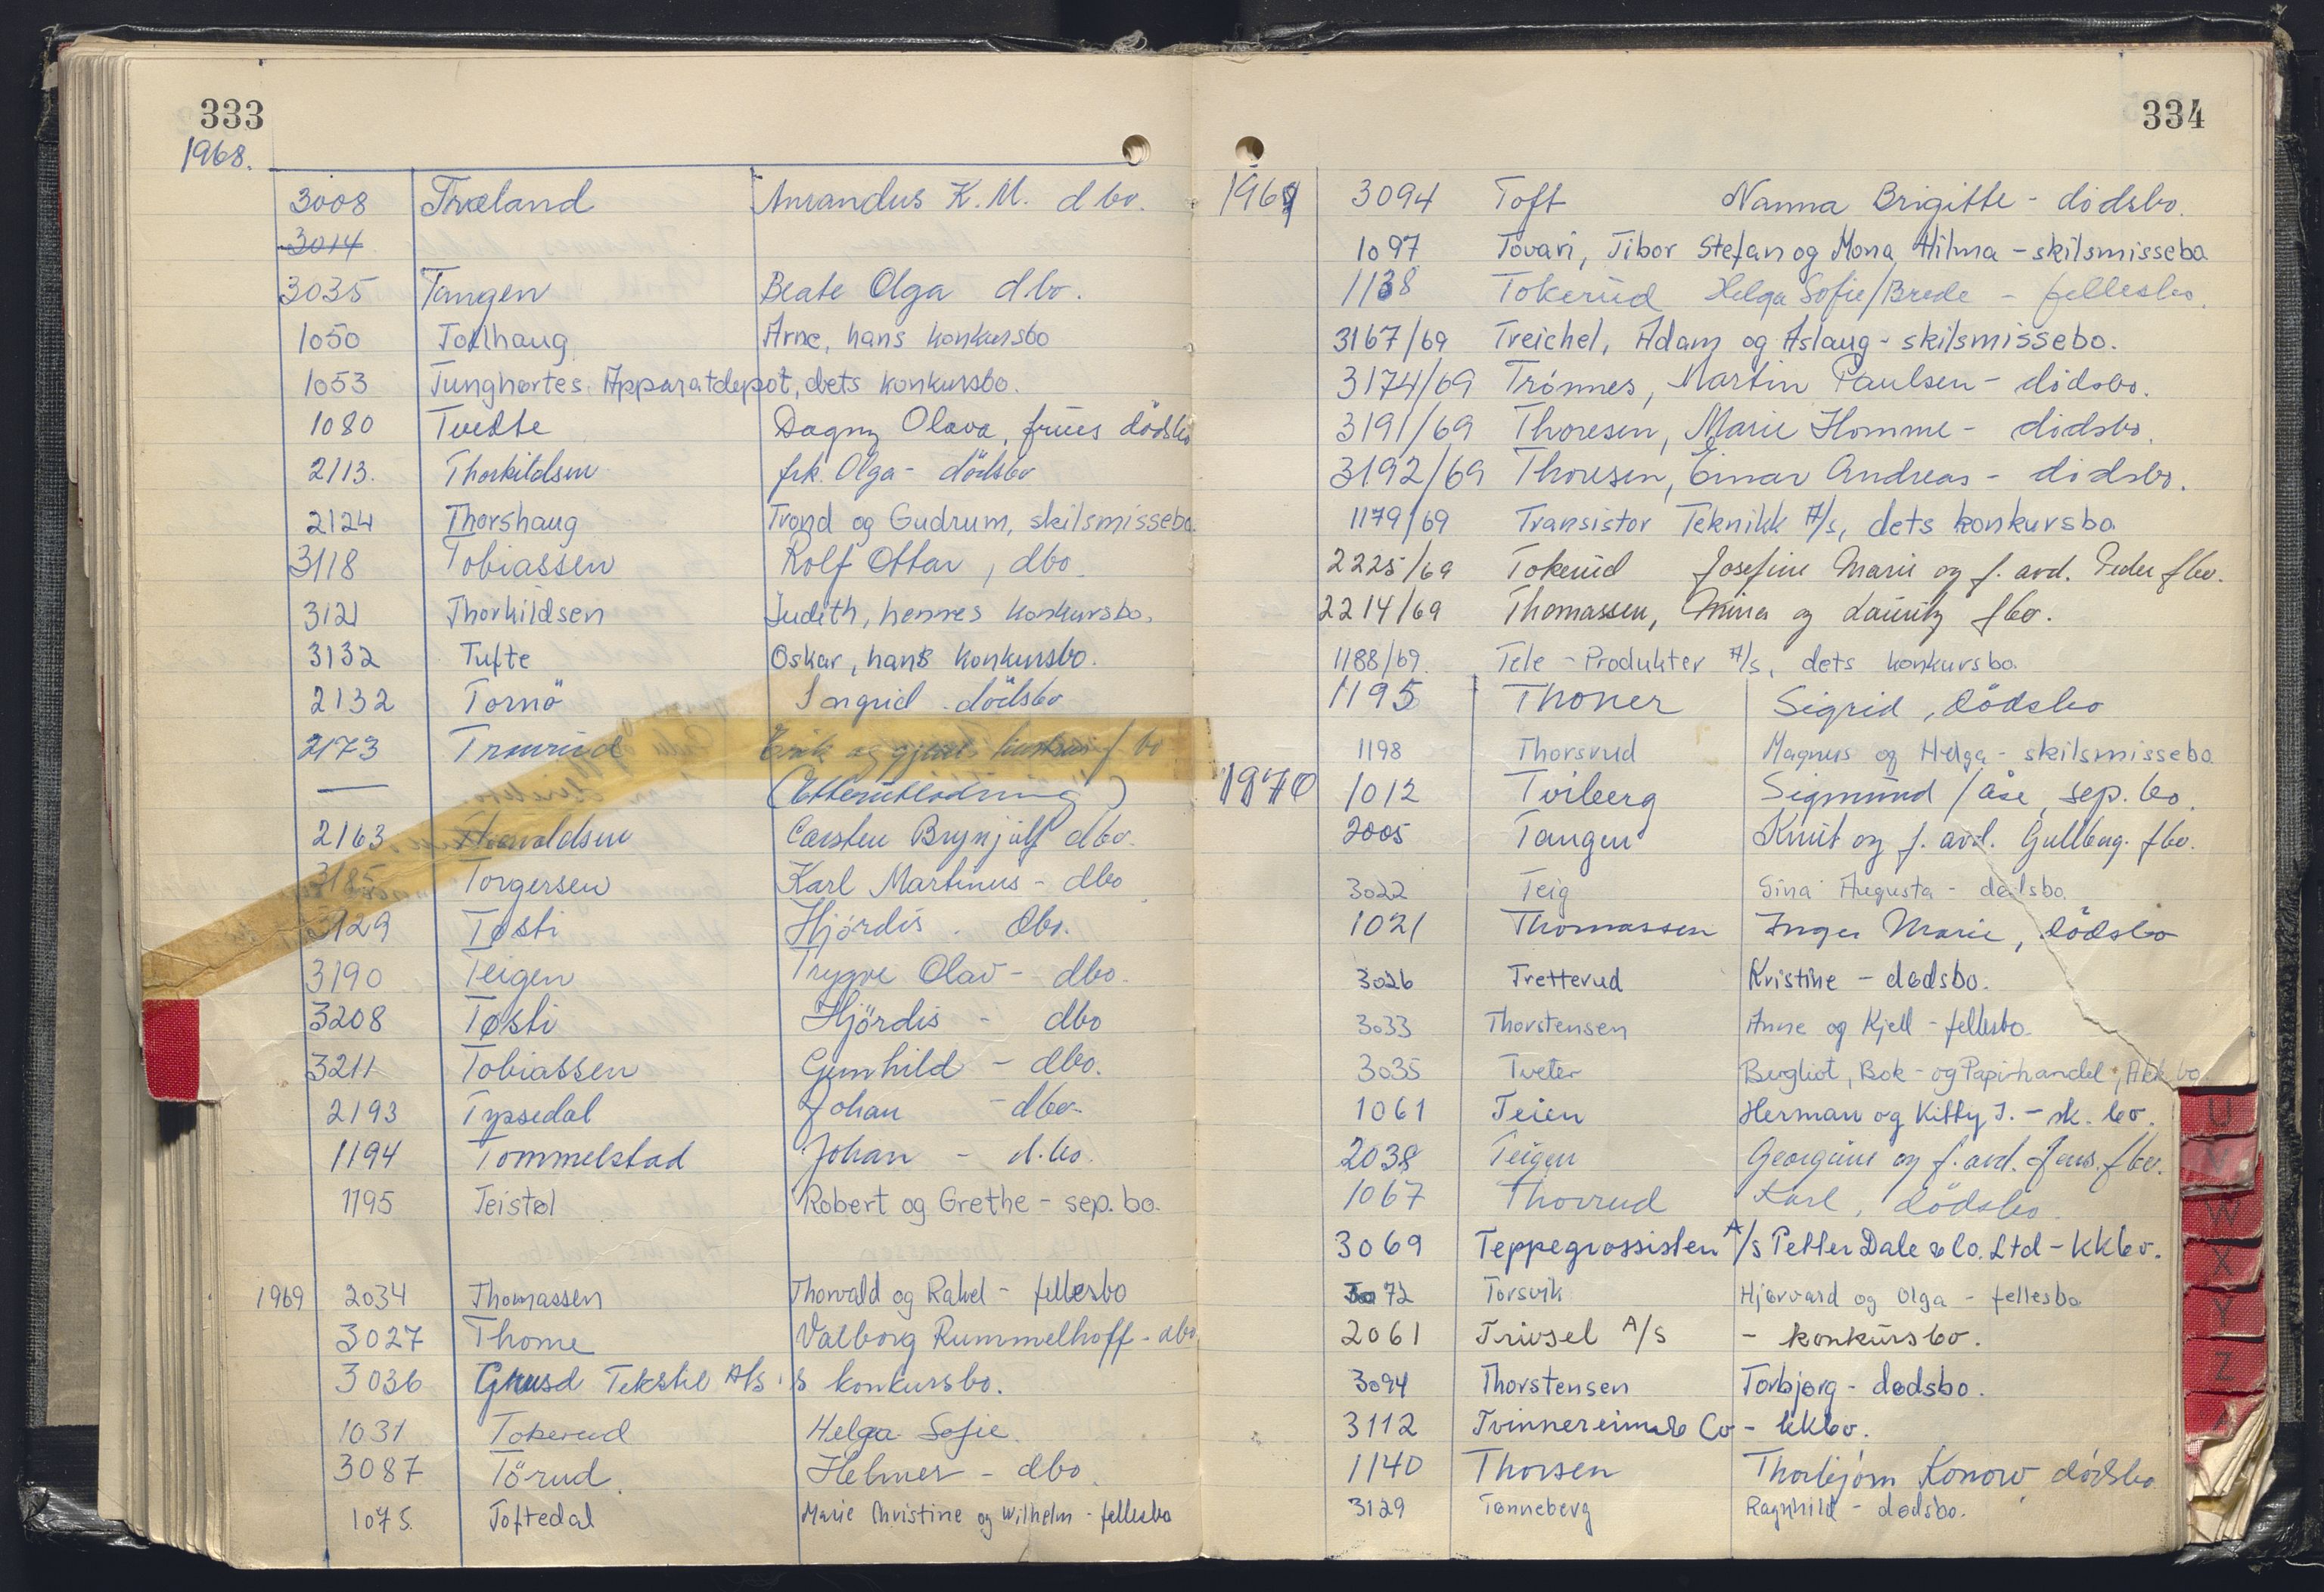 333
1968.
3008 Træland Amandus K. M. dbo.
3014
3035 Tangen Beate Olga dbo.
1050 Tollhaug Arne, hans konkursbo
1053 Tunghørtes Apparatdepot, dets konkursbo.
1080 Tvedte Dagny Olava, frues dödsbo
2113. Thorkildsen frk. Olga - dödsbo
2124 Thorshaug Trond og Gudrum, skilsmissebo.
3118 Tobiassen Rolf Ottar, dbo.
3121 Thorkildsen Judith, hennes konkursbo.
3132 Tufte Oskar, hans konkursbo.
2132 Tornö Ingrid. dödsbo
2173 Erik og f. bo
— (Etterutlodning)
2163 Thorvaldsen Carsten Brynjulf dbo.
3185 Torgersen Karl Martinus - dbo
3129 Tøsti Hjórdis. dbo.
3190 Teigen Trygve Olav - dbo.
3208 Tøsti Hjördis - dbo
3211 Tobiassen Gunhild - dbo.
2193 Typsedal Johan - dbo.
1194 Tommelstad Johan - d.bo.
1195 Teistøl Robert og Grethe - sep. bo.
1969 2034 Thomassen Thorvald og Rakel - fellesbo
3027 Thome Valborg Rummelhoff - dbo
3036 Tekstil A/s's konkursbo.
1031 Tokerud Helga Sofie.
3087 Törud. Helmer - dbo.
1075. Toftedal Marie Christine og Wilhelm - fellesbo
334
1969 3094 Toft Nanna Brigitte - dódsbo.
1097 Tovari, Tibor Stefan og Mona Hilma - skilsmissebo
1138 Tokerud Helga Sofie/Brede - fellesbo.
3167/69 Treichel, Adam og Aslaug - skilsmissebo.
3174/69 Trónnes, Martin Paulsen - dódsbo.
3191/69 Thoresen, Marie Homme - dódsbo.
3192/69 Thoresen, Einar Andreas - dódsbo.
1179/69 Transistor Teknikk A/s, dets konkursbo
2225/69 Tokerud Josefine Marie og f. avd. Peder fbo.
2214/69 Thomassen, Mina og Lauritz fbo.
1188/69. Tele-Produkter A/s, dets konkursbo.
1195 Thoner Sigrid, dödsbo
1198 Thorsrud Magnus og Helga - skilsmissebo.
1970 1012 Tviberg Sigmund / Åse, sep. bo.
2005 Tangen Knut og f. avd. Gullborg. fbo.
3022 Teig Sina Augusta - dødsbo.
1021 Thomassen Inger Marie, dödsbo
3026 Tretterud Kristine - dødsbo.
3033 Thorstensen Anne og Kjell - fellesbo.
3035 Tveter Bergliot, Bok- og Papirhandel, Akk.bo.
1061 Teien Herman og Kitty J. - sk. bo.
2038 Teigen Georgine og f. avd. Jens. fbo.
1067 Thorrud Karl, dödsbo.
3069 Teppegrossisten A/s Petter Dale & Co. Ltd - kkbo.
3072 Torsvik Hjørvard og Olga - fellesbo
2061 Trivsel A/S - konkursbo.
3094 Thorstensen Torbjørg - dødsbo.
3112 Tvinnereim & Co - kkbo.
1140 Thorsen Thorbjörn Konow dödsbo
3129 Tønneberg Ragnhild - dødsbo.
U
V
W
X
Y
Z